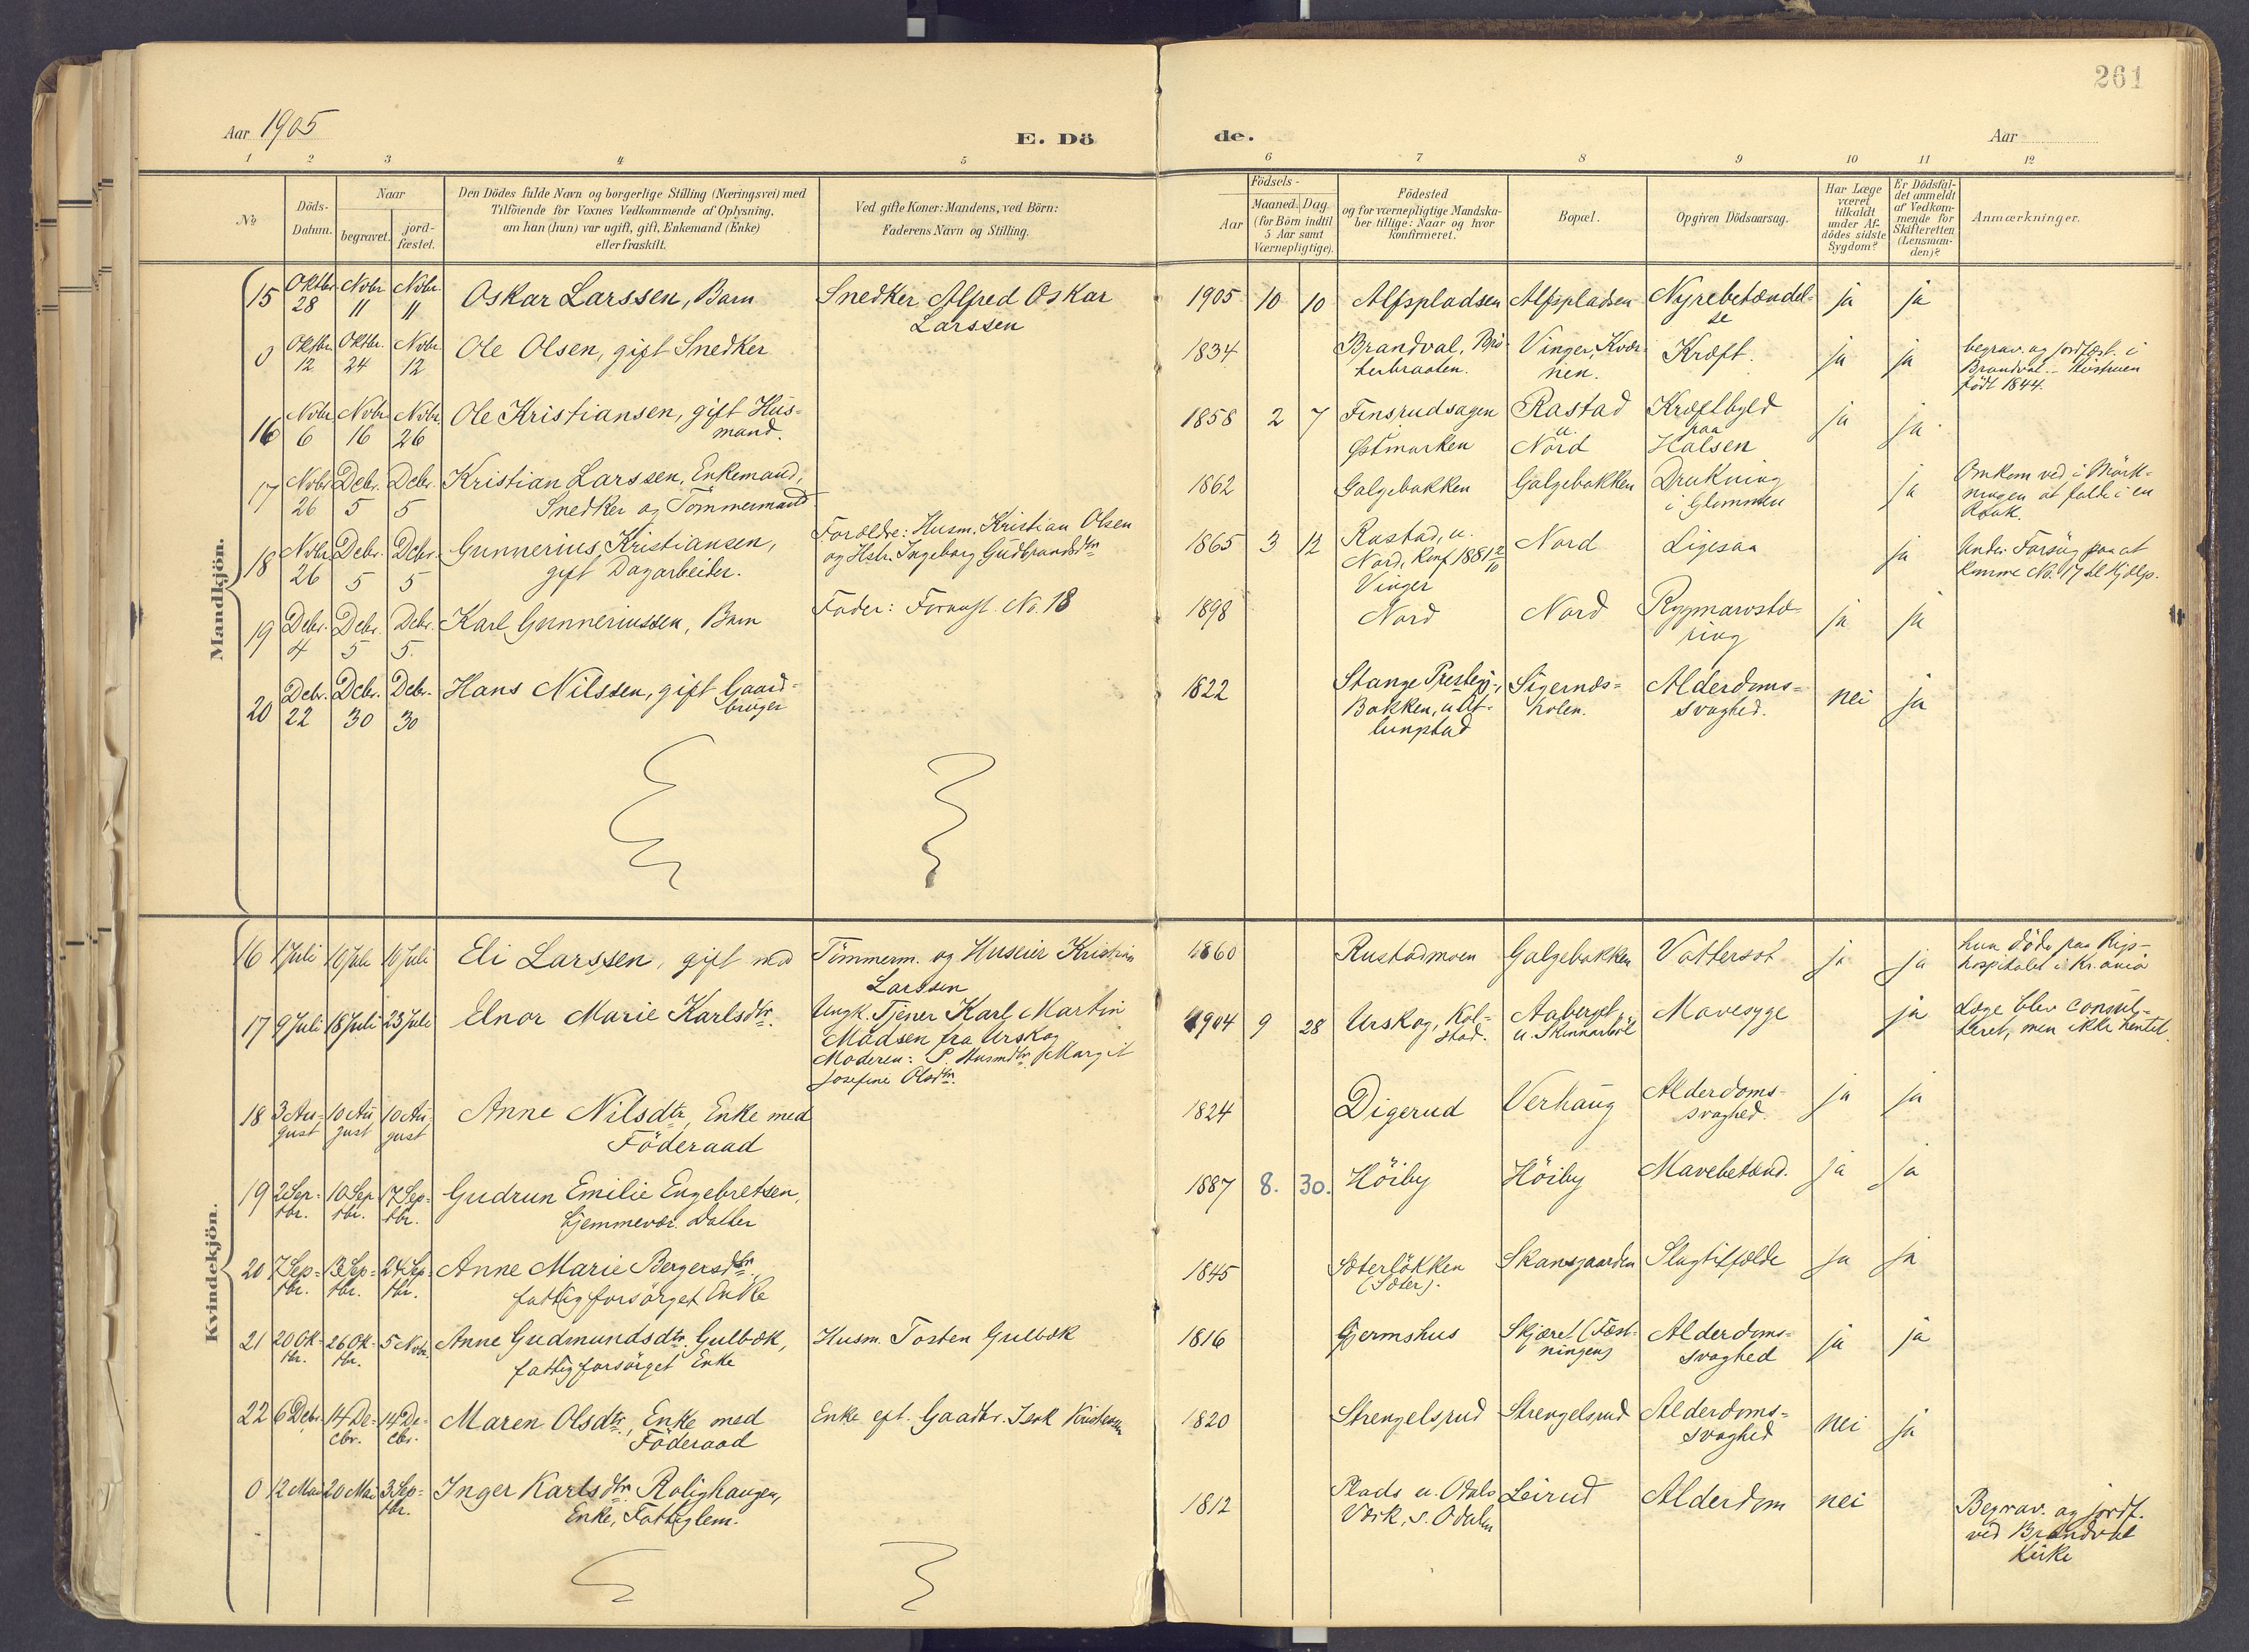 261
Aar 1905
E. Dö
de.
Aar
1 2 3 4 5 6 7 8 9 10 11 12
No
Döds-
Datum.
Naar
begravet.
jord-
fæstet.
Den Dödes fulde Navn og borgerlige Stilling (Næringsvei) med
Tilföiende for Voxnes Vedkommende af Oplysning,
om han (hun) var ugift, gift, Enkemand (Enke)
eller fraskilt.
Ved gifte Koner: Mandens, ved Börn:
Faderens Navn og Stilling.
Födsels-
Aar
Maaned. Dag.
(for Börn indtil
5 Aar samt
Værnepligtige).
Födested
og for værnepligtige Mandska-
ber tillige: Naar og hvor
konfirmeret.
Bopæl.
Opgiven Dödsaarsag.
Har Læge
været
tilkaldt
under Af-
dödes sidste
Sygdom?
Er Dödsfal-
det anmeldt
af Vedkom-
mende for
Skifteretten
(Lensman-
den)?
Anmærkninger.
Mandkjön.
15 Oktbr. 28 Nobr. 11 Nobr. 11 Oskar Larssen, Barn Snedker Alfred Oskar
Larssen
1905 10 10 Alfspladsen Alfspladsen Nyrebetændel-
se
ja ja
0 Oktbr. 12 Oktbr. 24 Nobr. 12 Ole Olsen, gift Snedker
1834 Brandval,
Vinger, Kvær-
nen.
Kræft. ja ja
begrav. og jordfæst. i
Brandval.
født 1844.
16 Nobr. 6 Nobr. 16 Nobr. 26 Ole Kristiansen, gift Hus-
mand.
1858 2 7 Finsrudsagen
Østmarken
Rastad
u.
Nord
Kræftbyld
paa
Halsen
ja ja
17 Nobr. 26 Debr. 5 Debr. 5 Kristian Larssen, Enkemand,
Snedker og Tömmermand
1862 Galgebakken Galgebakken Drukning
i Glommen
ja
Omkom ved i Mörk-
ningen at falde i en
Raak.
18 Nobr. 26 Debr. 5 Debr. 5 Gunnerius Kristiansen,
gift Dagarbeider.
Forældre: Husm. Kristian Olsen
og Hstr. Ingeborg Gudbrandsdtr
1865 3 12 Rastad, u.
Nord, Konf. 1881 2/10
Vinger
Nord Ligesaa ja
Under Forsög paa at
komme No. 17 til Hjælp.
19 Debr. 4 Debr. 5 Debr. 5. Karl Gunneriussen, Barn Fader: Foranst. No. 18
1898 Nord Nord Rygmarvstæ-
ring
ja ja
20 Debr. 22 Debr. 30 Debr. 30 Hans Nilssen, gift Gaard-
bruger
1822 Stange Prestegj.,
Bakken, u. At-
lungstad
Sigernæs-
holen.
Alderdoms-
svaghed.
nei ja
Kvindekjön.
16 1 Juli 10 Juli 10 Juli Eli Larssen, gift med Tömmerm. og Huseier Kristian
Larssen
1860 Rustadmoen Galgebakken Vattersot ja ja
hun döde paa Rigs-
hospitalet i Kr.ania
17 9 Juli 18 Juli 23 Juli Elnor Marie Karlsdtr. Ungk. Tjener Karl Martin
Madsen fra Urskog
Moderen: P. Husmdtr Margit
Josefine Olsdtr.
1904 9 28 Urskog, Kol-
stad.
Aaberget
u. Skinnarböl
Mavesyge ja
Læge blev consul-
teret, men ikke hentet.
18 3 Au-
gust
10 Au
gust
10 Au
gust
Anne Nilsdtr, Enke med
Föderaad
1824 Digerud Verhaug Alderdoms-
svaghed.
ja ja
19 2 Sep-
tbr.
10 Sep
tbr.
17 Sep-
tbr.
Gudrun Emilie Engebretsen,
hjemmevær. Datter
1887 8. 30. Höiby Höiby Mavebetænd. ja ja
20 7 Sep-
tbr.
13 Sep-
tbr.
24 Sep-
tbr.
Anne Marie Bergersdtr,
fattigforsörget Enke
1845 Sæterlökken
(Sæter).
Skansgaarden Slagtilfælde ja ja
21 20 Ok-
tbr.
26 Ok-
tbr.
5 Nobr. Anne Gudmundsdtr. Gulbæk,
fattigforsörget Enke
Husm. Tosten Gulbæk
1816 Gjermshus Skjæret (Fæst-
ningen)
Alderdoms-
svaghed
ja ja
22 6 Debr. 14 De-
cbr.
14 De-
cbr.
Maren Olsdtr, Enke med
Föderaad
Enke eft. Gaadbr. Isak Kristensen
1820 Strengelsrud Strengelsrud Alderdoms-
svaghed
nei ja
0 12 Mai 20 Mai 3 Sep-
tbr.
Inger Karlsdtr Rolighaugen,
Enke, Fattiglem.
1812 Plads u. Odals
Værk, s. Odalen
Leirud Alderdom nei
Begrav. og jordf.
ved Brandval
Kirke